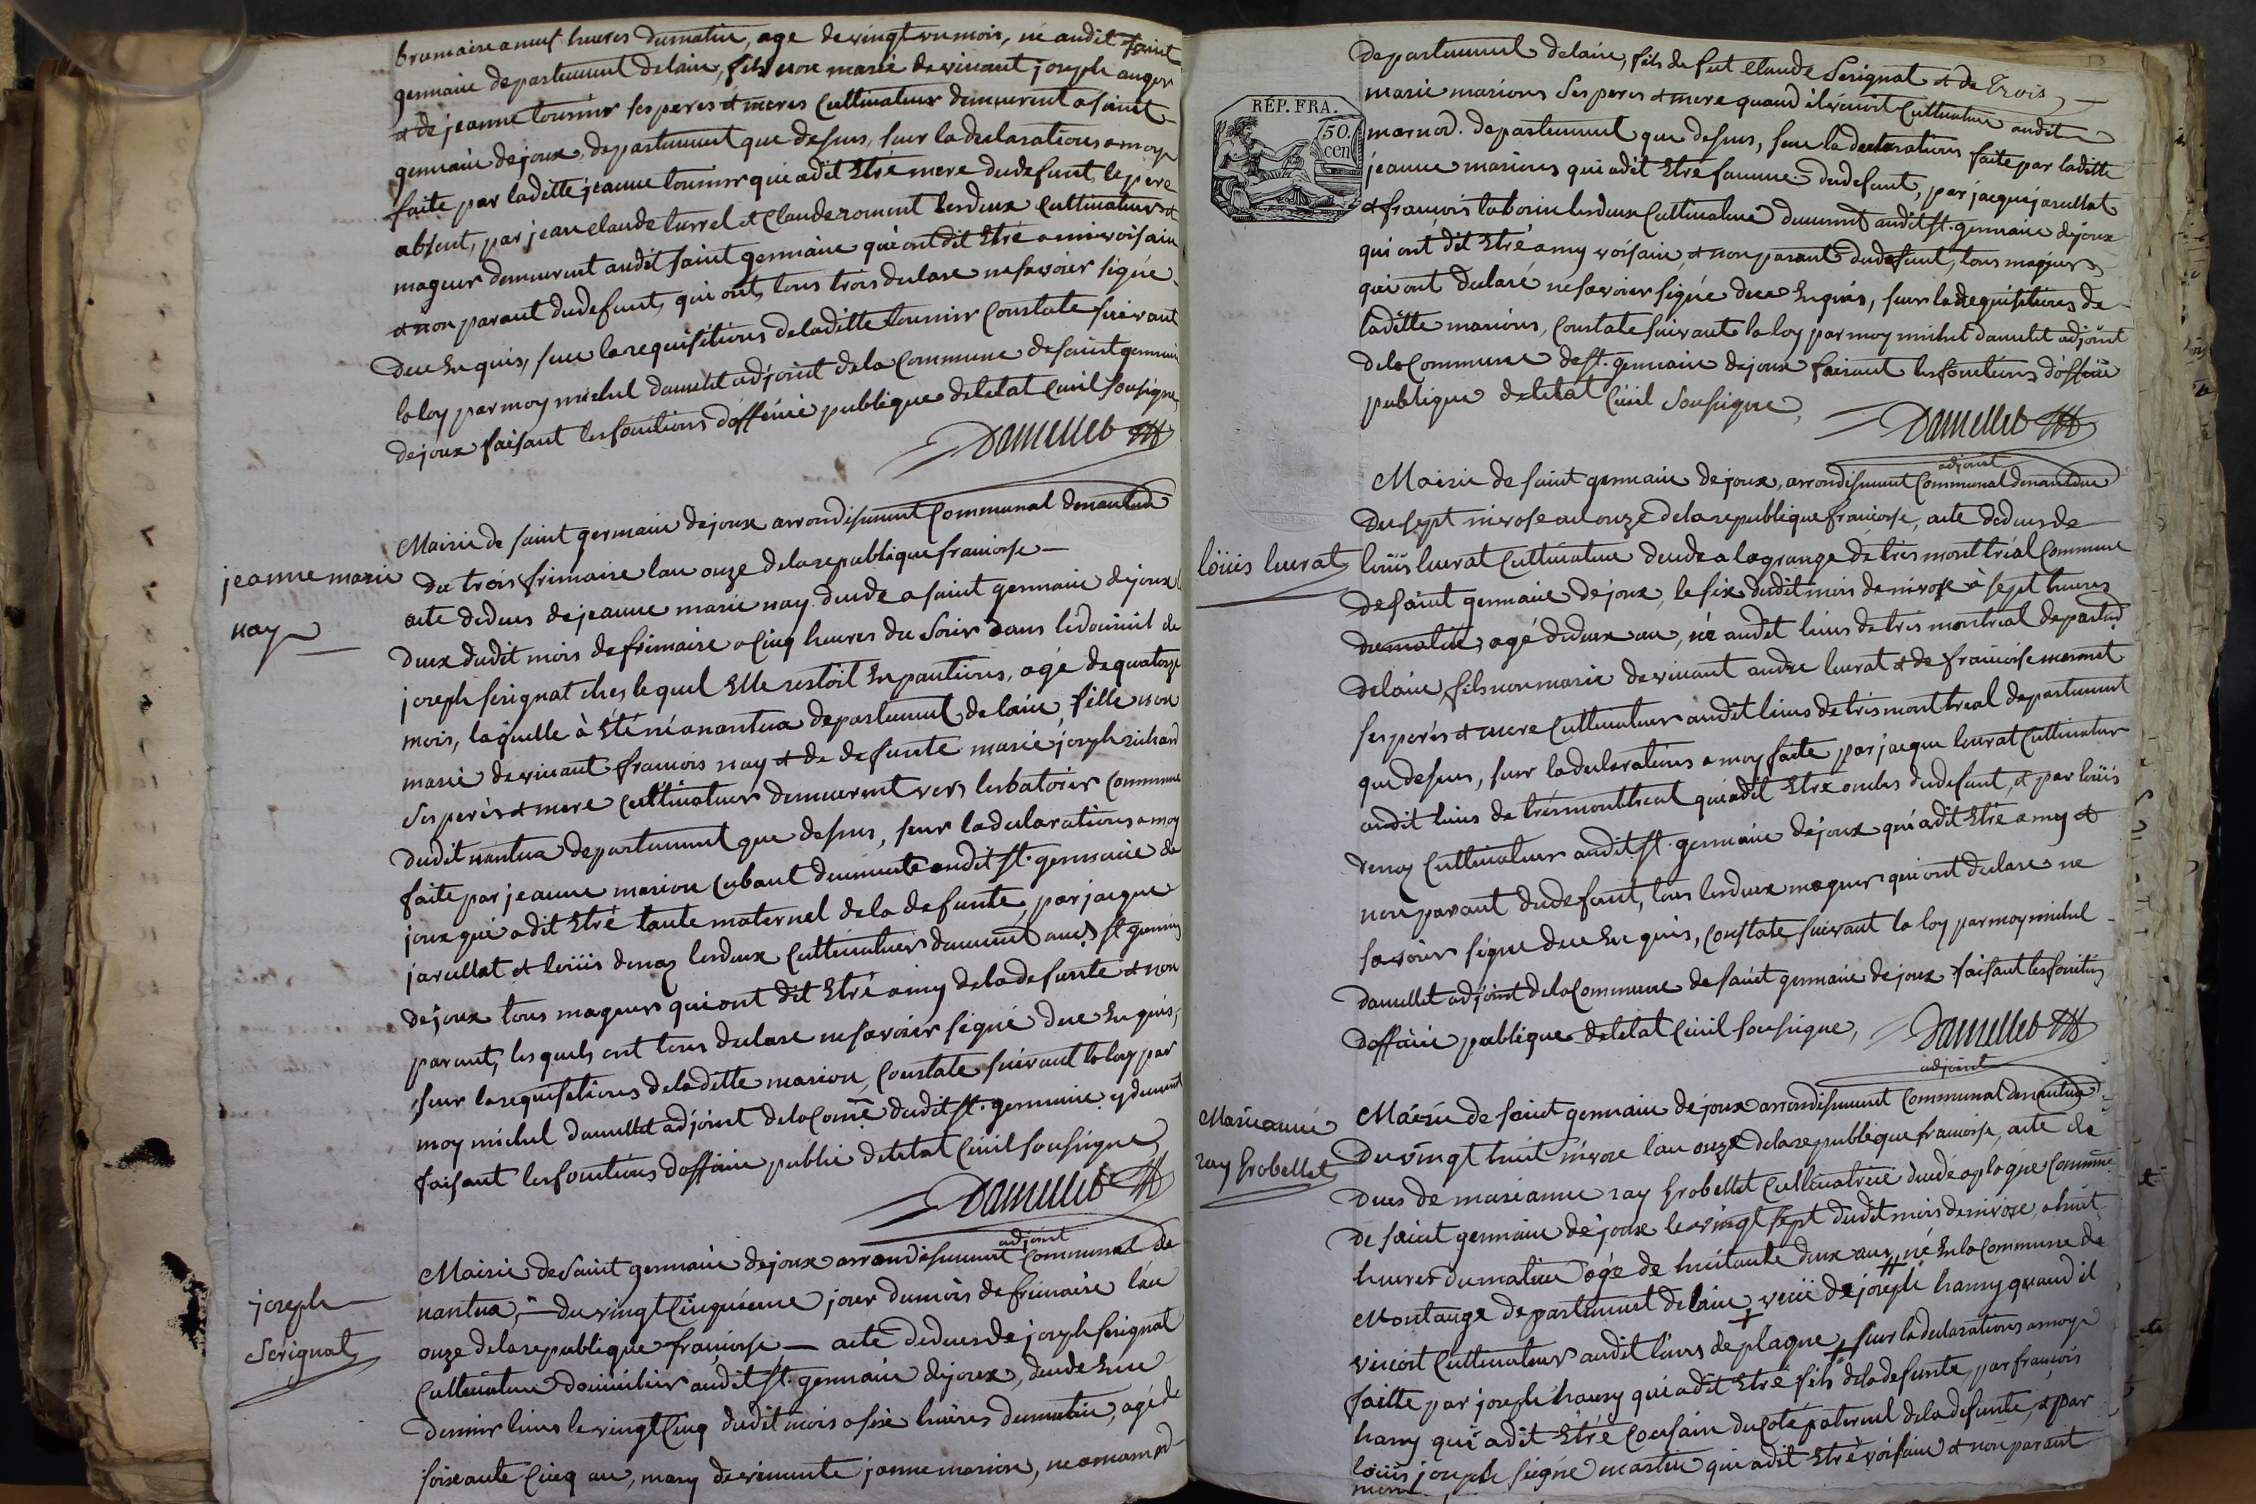 brumaire a neuf heures dumatin, age de vingt un mois, né audit saint
germaine departement delain, fils non marié de vivant joseph auger
et de jeanne tournir ses peres et meres Cultivateur demeurent a saint
germain dejoux, departement que desus, sur la declarations a moy
faite par laditte jeanne tournir qui a dit Etré mere dudefunt, le pere
absent, par jean claude turrel et Claude roment lesdeux Cultivateurs et
mageur demeurent audit saint germaine qui ont dit Etré ami voisain
et non parant dudefunt, qui ont tous trois declare ne savoier signé
duee Enquis, sur la requisitions deladitte tournir Constate suivant
la loy par moy michel daucllet adjoint dela Commune desaint germain
dejoux faisant les fonctions d'officié publique deletat Civil sousigne
Damellet
Mairie de saint germain dejoux arrondisement Communal denantua
jeanne marie
nay
du trois frimaire lan onze delarepublique francoise
acte dedeces dejeanne marie nay decede a saint germaine dejoux
deux dudit mois de frimaire a Cinq heures du Soir dans ledomicil de
joseph serignat ches lequel Elle restoit En pautions, agé dequatorze
mois, laquelle à Été né a nantua departement delain, fille non
marié devivant francois nay et de defunte marie joseph richard
ses perés et mere Cultivateur demeurent vers lesbatoirs Commune
dudit nantua departement que desus, sur la declarations a moy
faite par jeanne marion Cubant demeurente audit st. germaine de
joux qui a dit Etré tante maternel dela defunte, par jacque
jarcellat et loüis denaz lesdeux Cultivateurs demeurent audit st germain
dejoux tous mageurs qui ont dit Etré amy deladefunte et non
parant, lesquels ont tous declare ne savoier signé duee Enquis,
sur la requisitions deladitte marion, Constate suivant la loy par
moy michel damellet adjoint dela Comᵉ dudit st. germaine ydemeurent
faisant les fonctions doffisie public deletat Civil sousigne
Damellet
adjoint
Mairie de Saint germain dejoux arrondisement Communal de
joseph
Serignat
nantua, — du vingt Cinquieme jour dumois de frimaire l'an
onze delarepublique francoise — acte dedeces de joseph serignat
Cultivateur domicilier audit st. germaine dejoux, decede En ce
dernier lieus le vingt Cinq dudit mois a sixe heures dumatin, agé de
soixante Cinq an, mary de vivante jeanne marion, ne a marnod
departement delain, fils de fut Claude Serignat et de Trois
RÉP. FRA.
50.
cen
marie marions Ses peres et mere quand il vivoit Cultivateur audit
marnod. departement que desus, sur la declarations faite par laditte
jeanne marions qui a dit Etré famme dudefunt, par jacque jarcellat
et francois taborin lesdeux Cultivateur demeurent audit st. germaine dejoux
qui ont dit Etré amy voisain, et non parant dudefunt, tous mageurs
qui ont declaré ne savoier signé duee Enquis, sur la requisitions de
laditte marions, Constate suivant la loy par moy michel damellet adjoint
dela Commune de st. germaine dejoux faisant les fonctions d'officie
publique deletat Civil Sousigne,
Damellet
adjoint
Mairie de saint germain dejoux, arrondisement Communal denantua
du sept nivose an onze delarepublique francoise, acte dedeces de
loüis leurat
loüis leurat Cultivateur decede a lagrange de trés montréal Commune
desaint germaine dejoux, le six dudit mois de nivose à sept heures
dumatin, agé dedeux an, né audit lieus de tres montreal departᵗ
delain, fils non marie devivant andre leurat et de francoise mermet
ses perés et mere Cultivateur audit lieus de trés mont treal departement
que desus, sur la declarations a moy faite par jacque leurat Cultivateur
audit lieus de trés montreal qui a dit Etre oncles dudefunt, et par loüis
denaz Cultivateur audit st. germaine dejoux qui a dit Etré amy et
non parant dudefunt, tous lesdeux mageurs qui ont declare ne
savoier signe duee Enquis, Constate suivant la loy par moy michel
damellet adjoint dela Commune de saint germaine dejoux faisant les fonctions
doffisie publique deletat Civil sousigne,
Damellet
adjoint
Mairie de saint germain dejoux arrondisement Communal denantua
Marieanne
ray Grobellet
Du vingt huit nivose l'an onze delarepublique francoise, acte de
deces de marianne ray Grobellet Cultivatrice decedé a plagne Commune
de saint germaine dejoux le vingt sept dudit mois de nivose a huit
heures dumatin agé de huitante deux ans, né En la Commune de
Montange departement de lain veüe de joseph hanny quand il
vivoit Cultivateur audit lieus de plagne, sur la declarations a moy
faitte par joseph hanny qui a dit Etré fils deladefunte, par francois
hanny qui a dit Etré Cousain du Coté paternel deladefunte, et par
loüis joseph seigne martin qui a dit Etré voisain et non parant